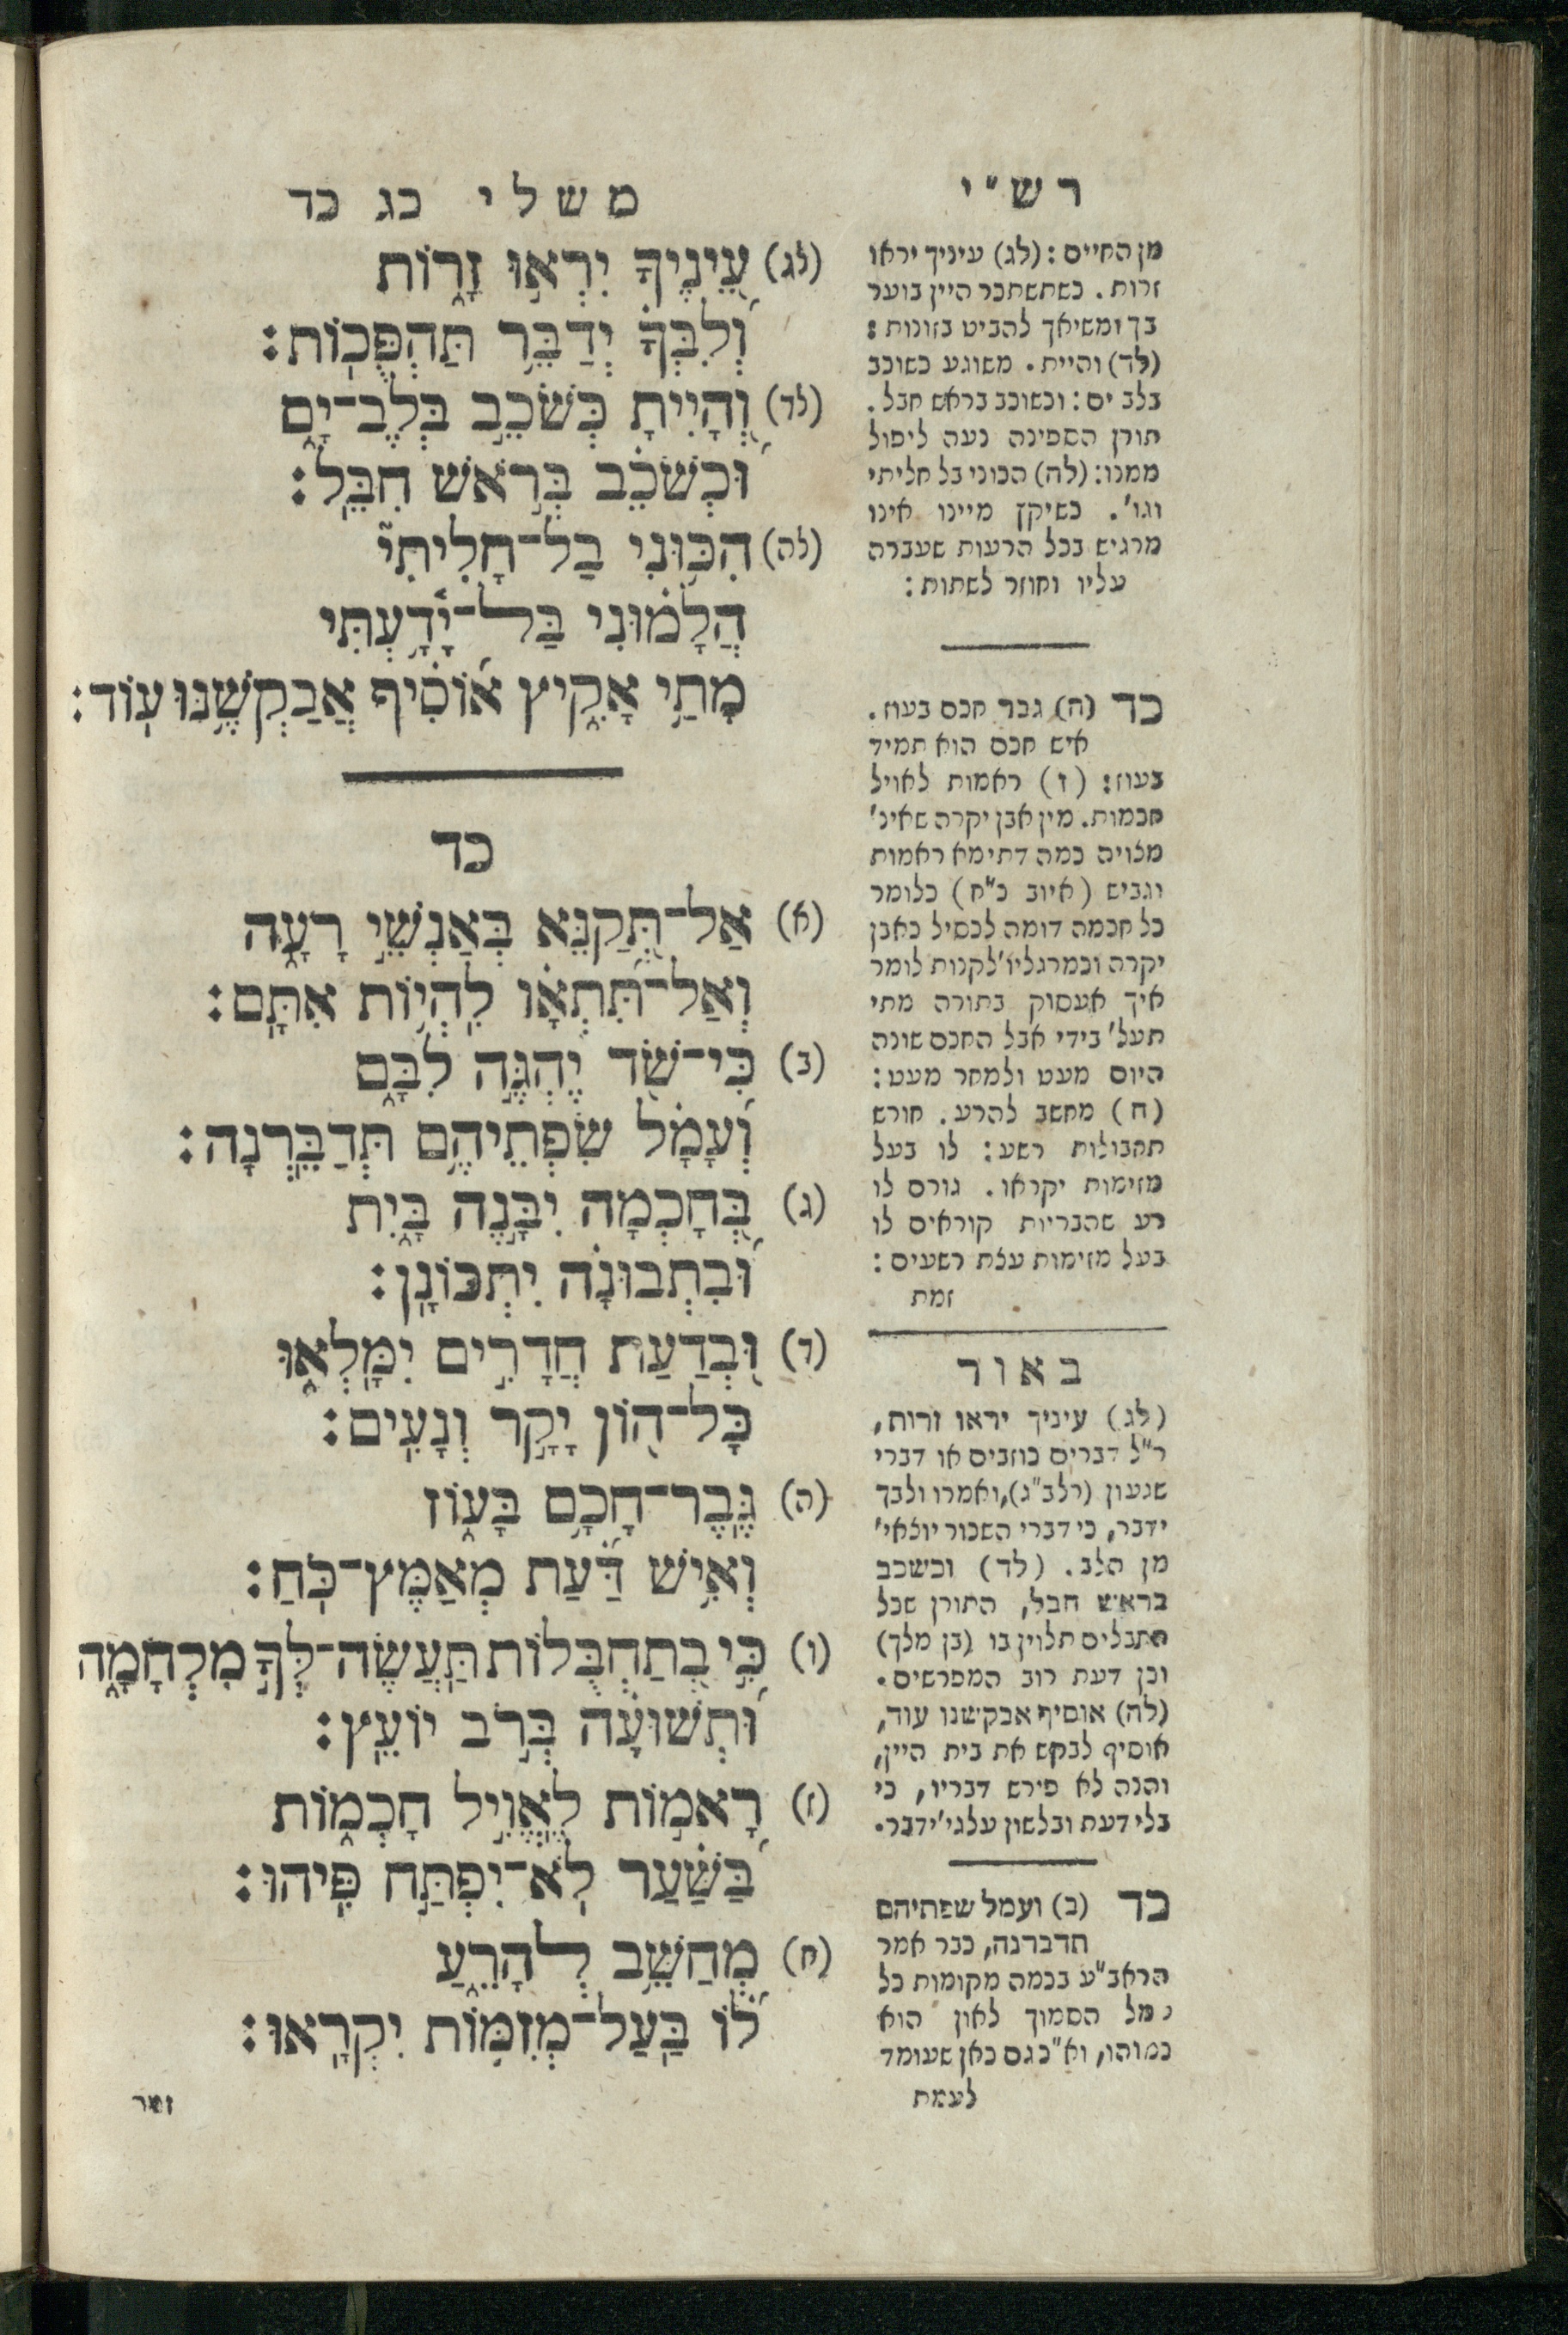 רש״י
מן החיים: (לג) עיניך יראו
זרות. כשתשתכר היין בוער
בך ומשיאך להביט בזונות:
(לד) והיית. משוגע כשוכב
בלב ים: וכשוכב בראש חבל.
תורן הספינה נעה ליפול
ממנו: (לה) הכוני בל חליתי
וגו'. כשיקץ מיינו אינו
מרגיש בכל הרעות שעברה
עליו וחוזר לשתות:
כד (ה) גבר חכם בעוז.
איש חכם הוא תמיד
בעוז: (ז) ראמות לאויל
חכמות. מין אבן יקרה שאינ'
מצויה כמה דתימא ראמות
וגביש (איוב כ"ח) כלומר
כל חכמה דומה לכסיל כאבן
יקרה וכמרגליו' לקנות לומר
איך אעסוק בתורה מתי
תעל' בידי אבל החכם שונה
היום מעט ולמחר מעט:
(ח) מחשב להרע. חורש
תחבולות רשע: לו בעל
מזימות יקראו. גורם לו
רע שהבריות קוראים לו
בעל מזימות עצת רשעים:
זמת
באור
(לג) עיניך יראו זרות,
ר"ל דברים כוזבים או דברי
שגעון (רלב"ג), ואמרו ולבך
ידבר, כי דברי השכור יוצאי'
מן הלב. (לד) וכשכב
בראש חבל, התורן שכל
החבלים תלוין בו (בן מלך)
וכן דעת רוב המפרשים.
(לה) אוסיף אבקשנו עוד,
אוסיף לבקש את בית היין,
והנה לא פירש דבריו, כי
בלי דעת ובלשון עלגי' ידבר.
כד (ב) ועמל שפתיהם
תדברנה, כבר אמר
הראב"ע בכמה מקומות כל
עמל הסמוך לאון הוא
כמוהו, וא"כ גם כאן שעומד
לעמת
משלי כג כד
(לג) עֵ֭ינֶיךָ יִרְא֣וּ זָר֑וֹת
וְ֝לִבְּךָ֗ יְדַבֵּ֥ר תַּהְפֻּכֽוֹת:
(לד) וְ֭הָיִיתָ כְּשֹׁכֵ֣ב בְּלֶב־יָ֑ם
וּ֝כְשֹׁכֵ֗ב בְּרֹ֣אשׁ חִבֵּֽל:
(לה) הִכּ֥וּנִי בַל־חָלִיתִי֮
הֲלָמ֗וּנִי בַּל־יָ֫דָ֥עְתִּי
מָתַ֥י אָקִ֑יץ א֝וֹסִ֗יף אֲבַקְשֶׁ֥נּוּ עֽוֹד:
כד
(א) אַל־תְּ֭קַנֵּא בְּאַנְשֵׁ֣י רָעָ֑ה
וְאַל־תִּ֝תְאָ֗ו לִֽהְי֥וֹת אִתָּֽם:
(ב) כִּי־שֹׁ֭ד יֶהְגֶּ֣ה לִבָּ֑ם
וְ֝עָמָ֗ל שִׂפְתֵיהֶ֥ם תְּדַבֵּֽרְנָה:
(ג) בְּ֭חָכְמָה יִבָּ֣נֶה בָּ֑יִת
וּ֝בִתְבוּנָ֗ה יִתְכּוֹנָֽן:
(ד) וּ֭בְדַעַת חֲדָרִ֣ים יִמָּלְא֑וּ
כָּל־ה֭וֹן יָקָ֣ר וְנָעִֽים:
(ה) גֶּֽבֶר־חָכָ֥ם בָּע֑וֹז
וְאִֽישׁ דַּ֝֗עַת מְאַמֶּץ־כֹּֽחַ:
(ו) כִּ֣י בְ֭תַחְבֻּלוֹת תַּֽעֲשֶׂה־לְּךָ֣ מִלְחָמָ֑ה
וּ֝תְשׁוּעָ֗ה בְּרֹ֣ב יוֹעֵֽץ:
(ז) רָאמ֣וֹת לֶֽאֱוִ֣יל חָכְמ֑וֹת
בַּ֝שַּׁ֗עַר לֹ֣א־יִפְתַּח פִּֽיהוּ:
(ח) מְחַשֵּׁ֥ב לְהָרֵ֑עַ
ל֝֗וֹ בַּֽעַל־מְזִמּ֥וֹת יִקְרָֽאוּ: